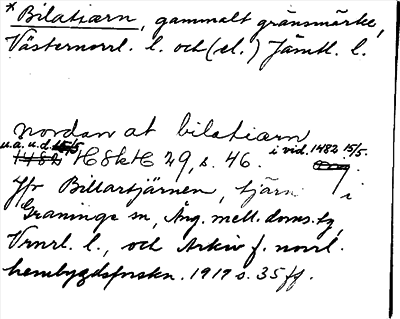 * Bilatiærn, gammalt gränsmärke,
Västernorrl. l. och (el.) Jämtl. l.
nordan at bilatiærn
u.a.u.d. 15/5 i vid. 1482 15/5.
1482 HSkH 29, s. 46.
Jfr Billartjärnen, tjärn i
Graninge sn, Ång. mell. doms. tg,
Vrnrl. l., och Arkiv f. norrl.
hembygdsforskn. 1917 s. 35 ff.